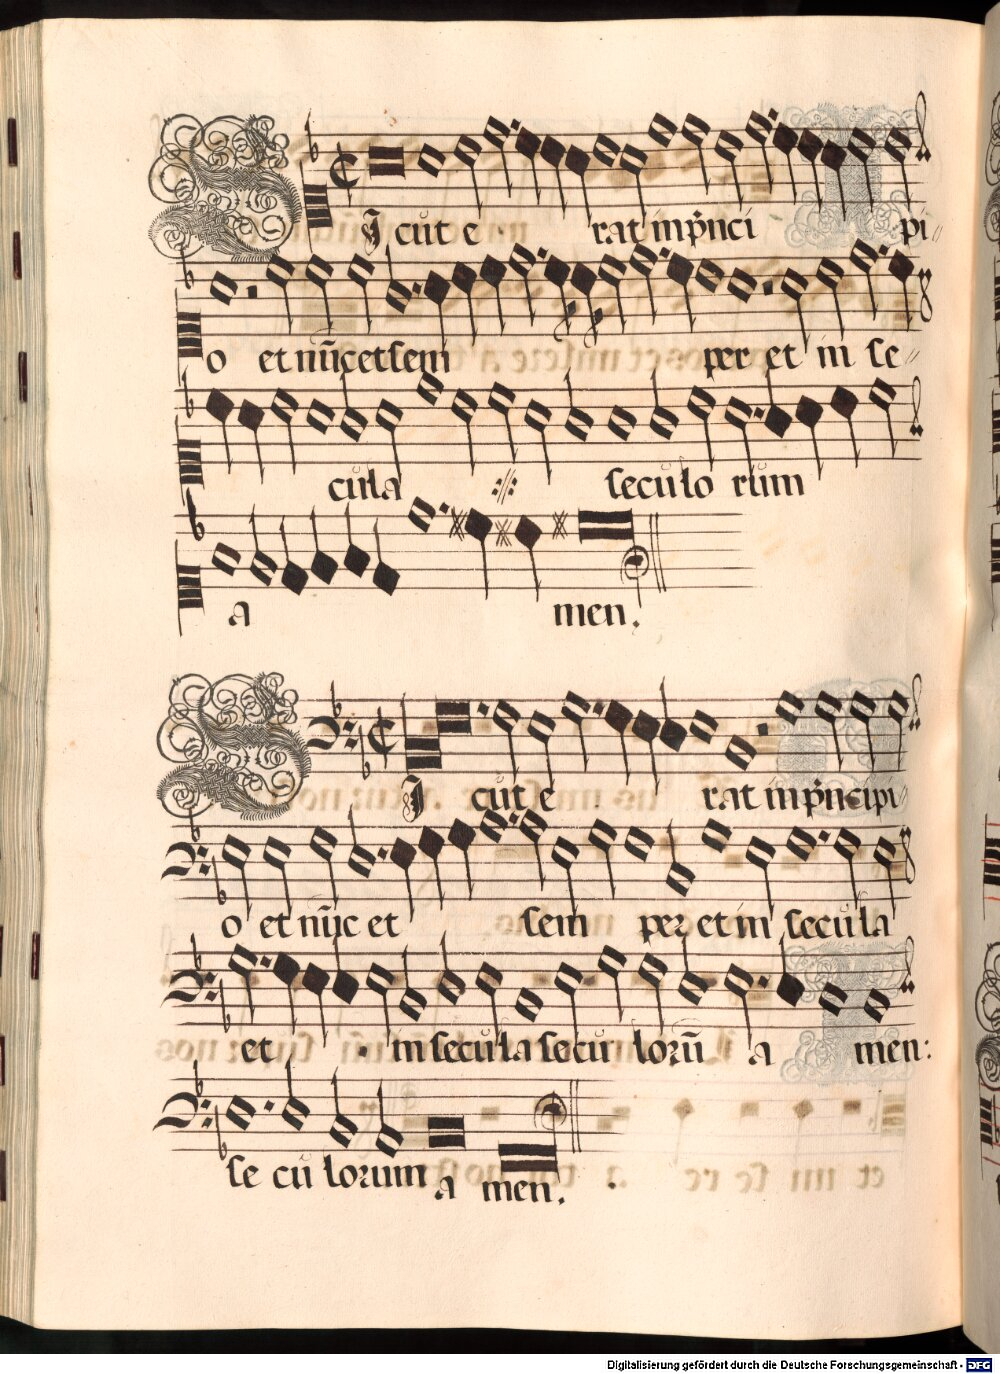 Sicut erat in pṅnci pi
o et nūc et sem per et in se
cula seculo rum
a men.
Sicut e rat in pṅncipi
o et nūc et sem per et in secula
et in secula secu lorū a men:
se cu lorum a men.
Digitalisierung gefördert durch die Deutsche Forschungsgemeinschaft - DFG